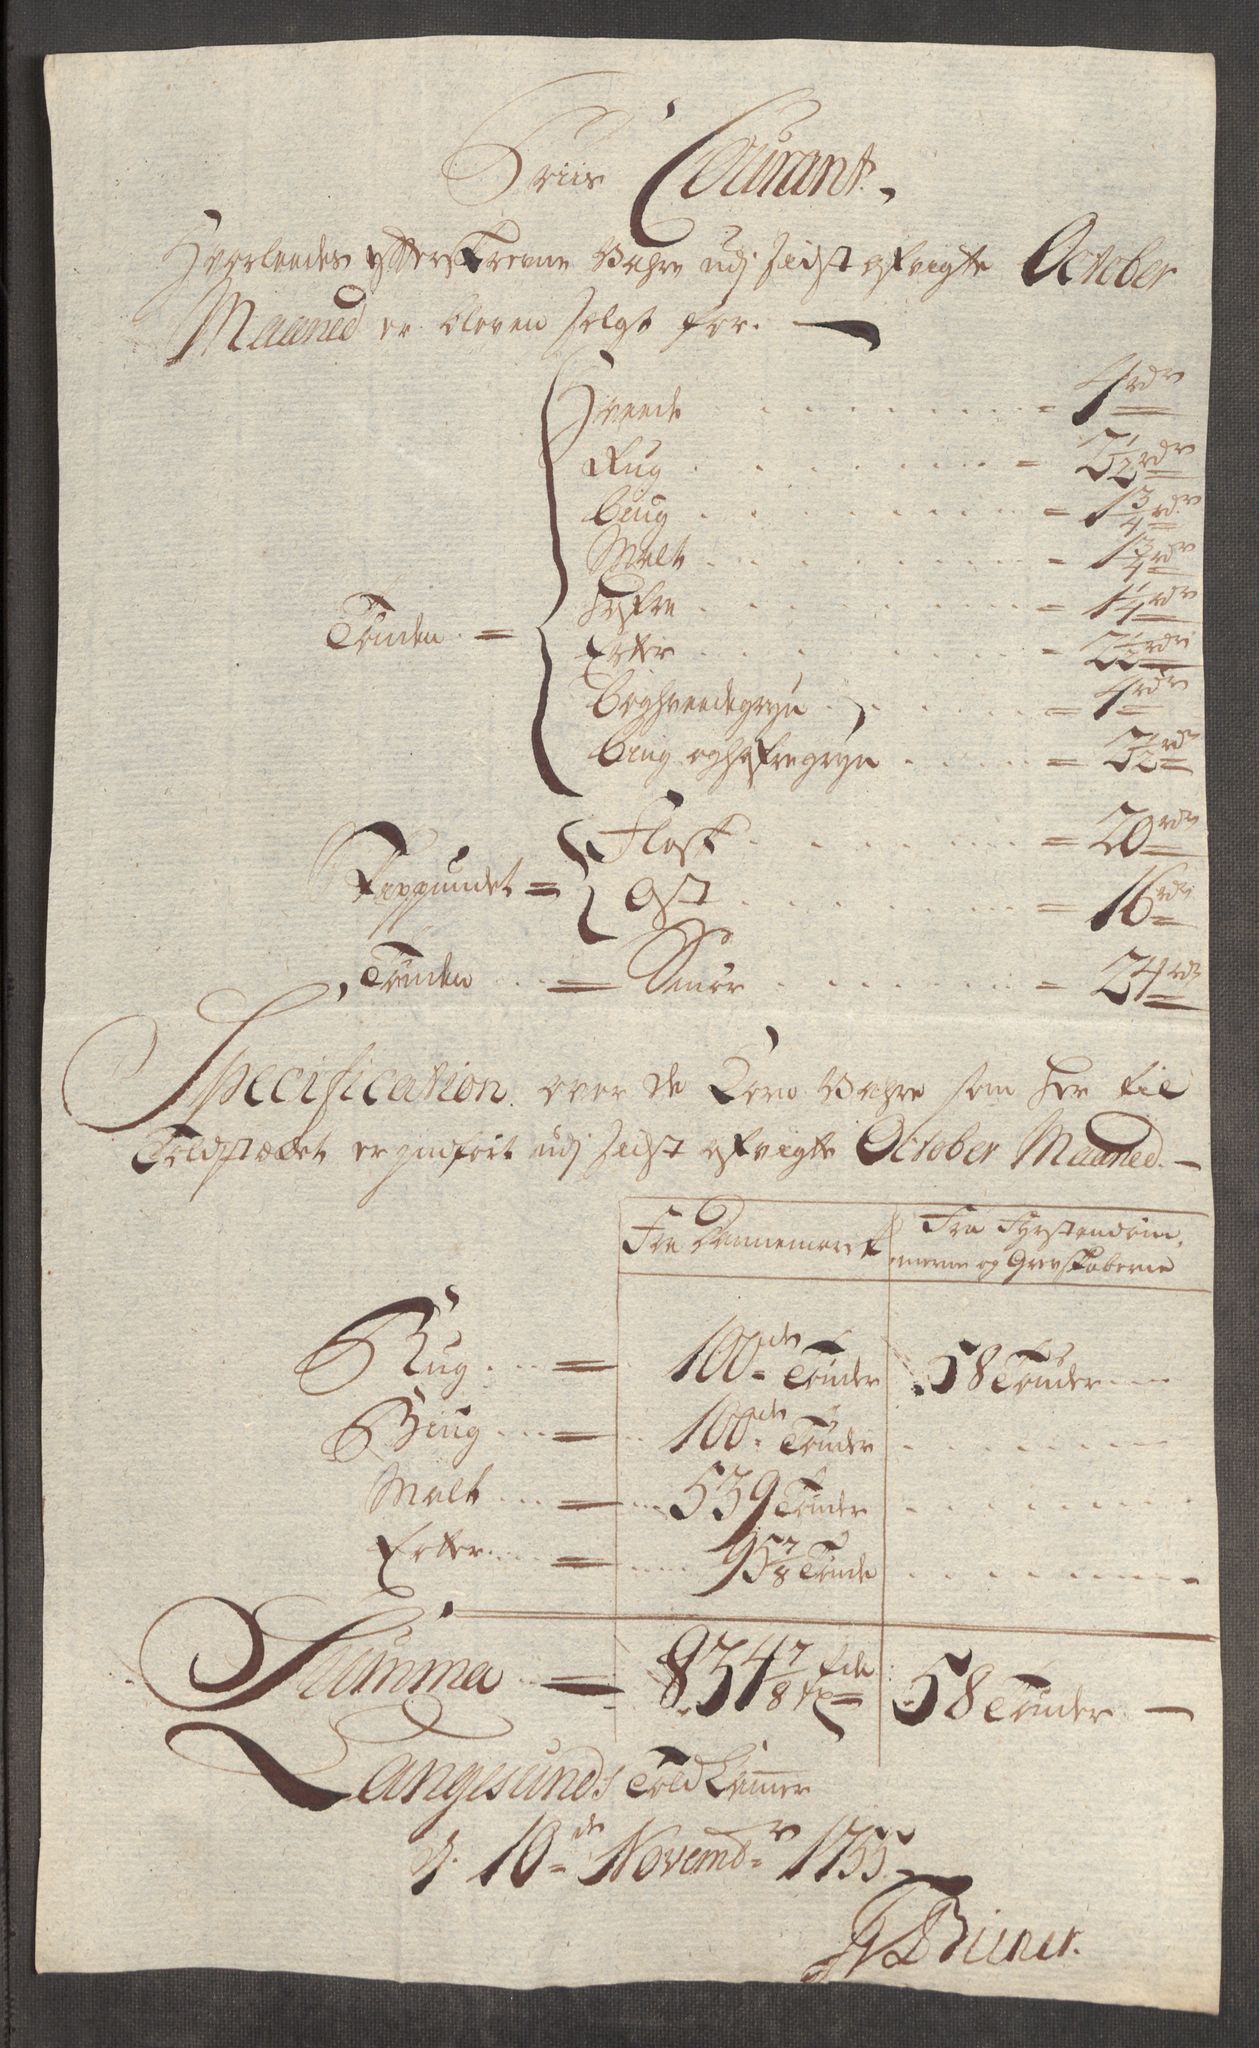 Priis Courant.
Hvorleedes efterskrevne Vahre udj sidst afvigte October
Maaned er bleven solgt for.
Hveede = 4 rdr
Rug = 2 1/2 rdr
Biug = 1 3/4 rdr
Malt = 1 3/4 rdr
Tønden = Hafre = 1 1/4 rdr
Erter = 2 1/2 rdr
Boghveedegryn = 4 rdr
Biug og hafregryn = 2 1/2 rdr
Skippundet = Flesk = 20 rdr
Ost = 16 rdr
Tønden = Smør = 24 rdr
Specification over de Korn Vahre som her til
Toldstædet er indført udj sidst afvigte October Maaned.
Fra Dannemarck Fra Fyrstendøm,
merne og Grevskaberne
Rug = 100de Tønder 58 Tønder
Biug = 100de Tønder
Malt = 539 Tønder
Erter = 95 7/8 Tønde
Summa = 834 7/8 58 Tønder
Langesunds Told Kamer
d. 10de Novembr 1755.